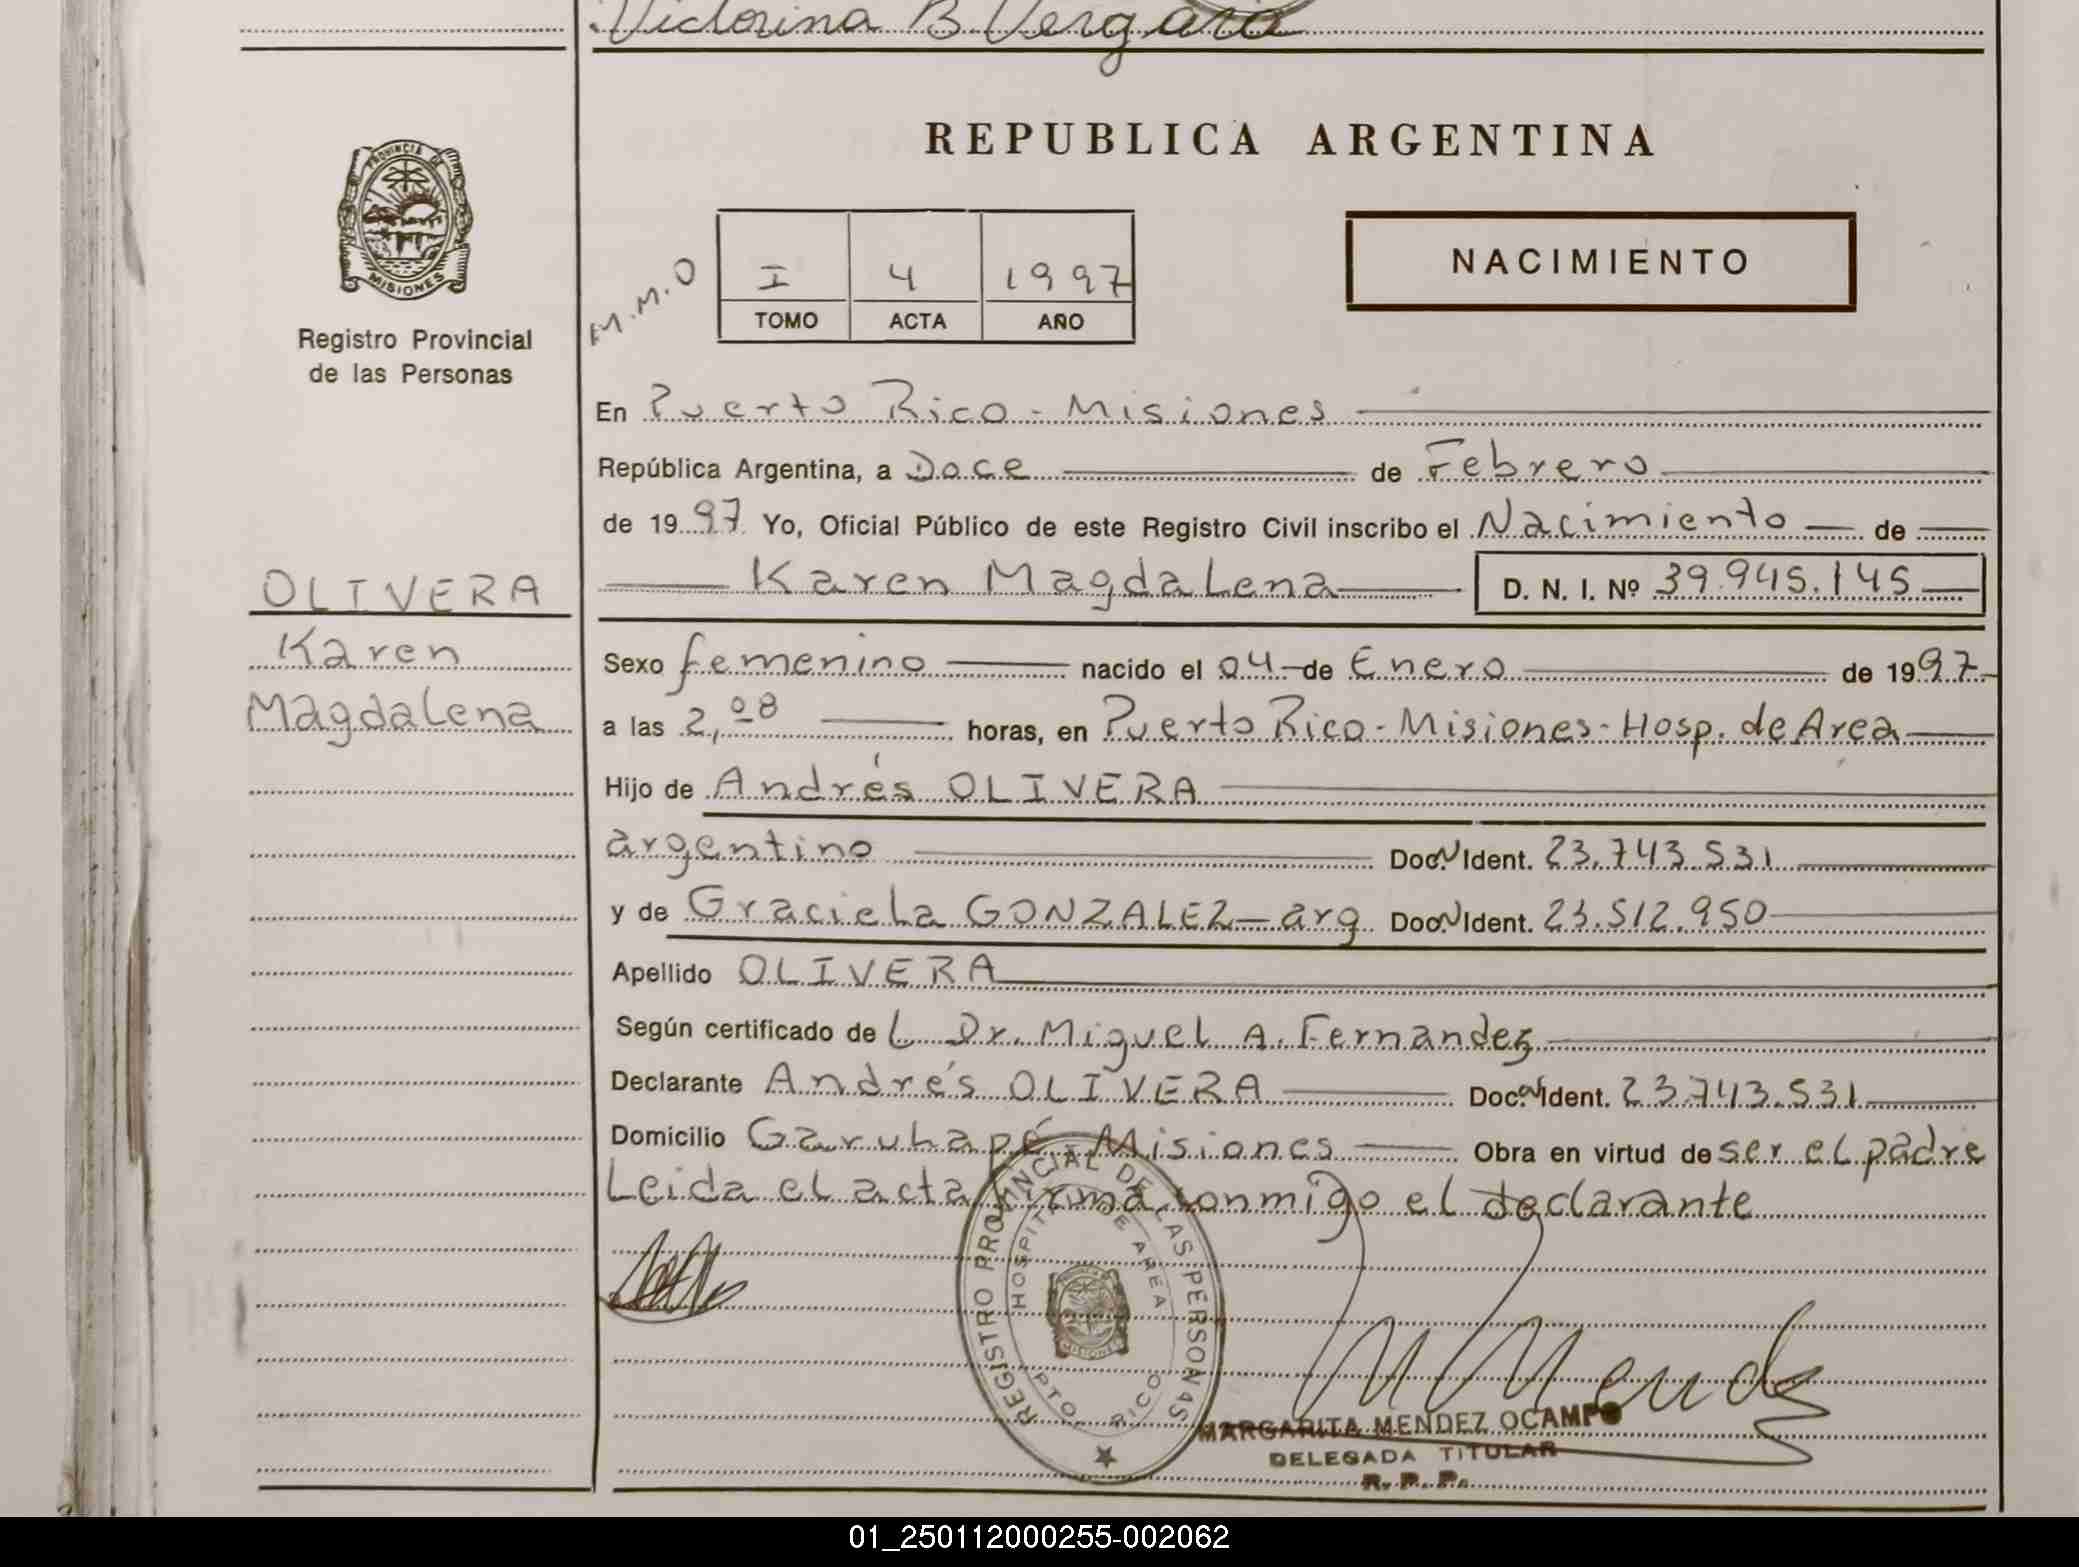 Victorina B Vergara
REPUBLICA ARGENTINA
PROVINCIA DE
MISIONES
Registro Provincial
de las Personas
M.M.O
I 4 1997
TOMO ACTA AÑO
NACIMIENTO
En Puerto Rico - Misiones
República Argentina, a Doce de Febrero
de 1997 Yo, Oficial Público de este Registro Civil inscribo el Nacimiento de
Karen Magdalena D. N. I. Nº 39.945.145
OLIVERA
Karen
Magdalena
Sexo femenino nacido el 04 de Enero de 1997
a las 2,08 horas, en Puerto Rico - Misiones - Hosp. de Area
Hijo de Andrés OLIVERA
argentino Doc. N Ident. 23.743.531
y de Graciela GONZALEZ - arg Doc. N Ident. 23.512.950
Apellido OLIVERA
Según certificado de L Dr. Miguel A. Fernandez
Declarante Andrés OLIVERA Doc. N Ident. 23.743.531
Domicilio Garuhapé Misiones Obra en virtud de ser el padre
Leida el acta firma conmigo el declarante
REGISTRO PROVINCIAL DE LAS PERSONAS
HOSPITAL DE AREA
PTO. RICO
MISIONES
M Mendez
MARGARITA MENDEZ OCAMPO
DELEGADA TITULAR
R. P. P.
01_250112000255-002062